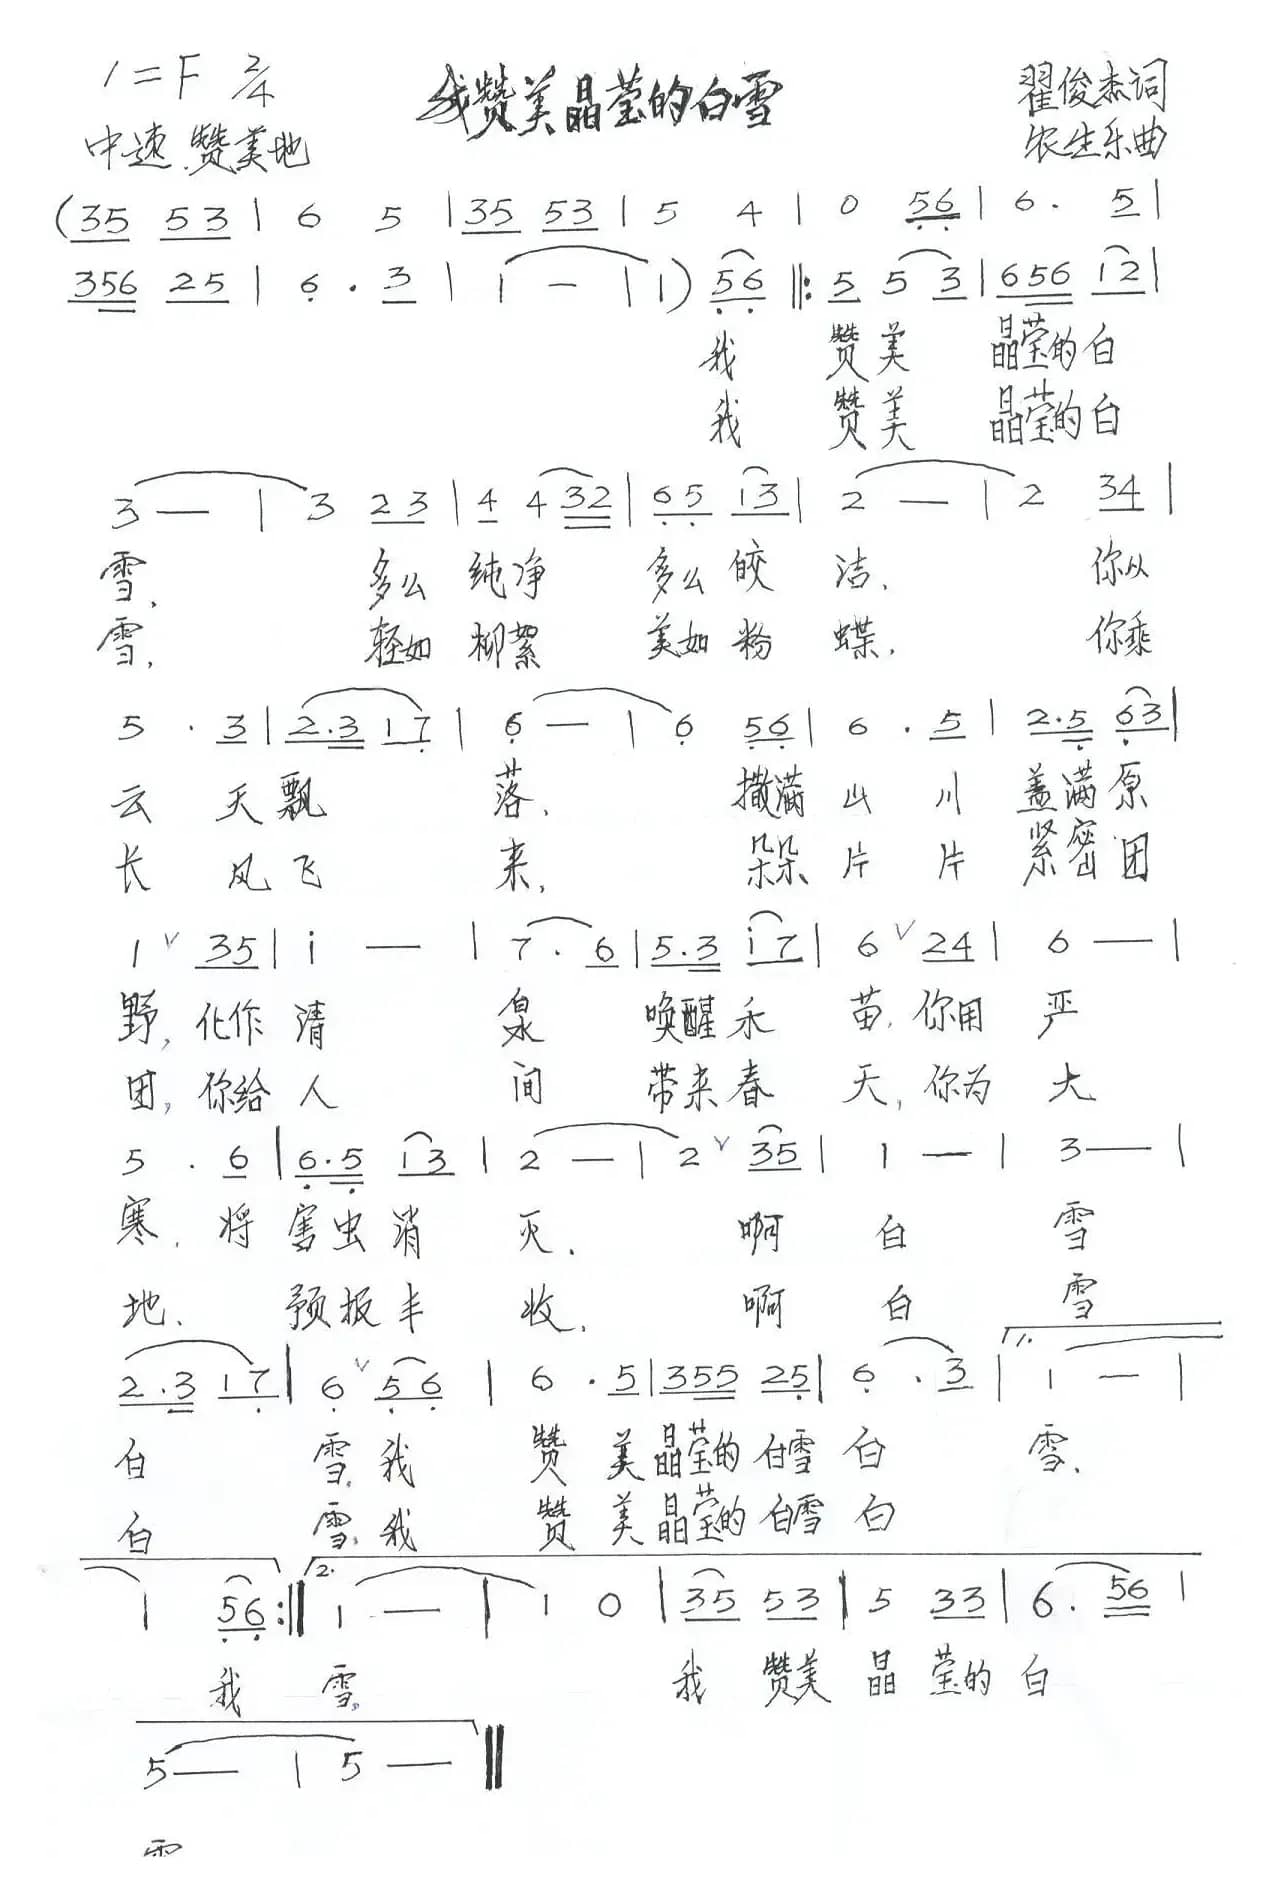 1=F 2/4 我赞美晶莹的白雪 翟俊杰词
中速 赞美地 农生乐曲
(35 53 | 6 5 | 35 53 | 5 4 | 0 56 | 6. 5 |
356 25 | 6. 3 | 1 — | 1) 56 ‖: 5 5 3 | 656 12 |
我 赞美 晶莹的白
我 赞美 晶莹的白
3 — | 3 23 | 4 4 32 | 65 13 | 2 — | 2 34 |
雪, 多么 纯净 多么 皎 洁, 你从
雪, 轻如 柳絮 美如 粉 蝶, 你乘
5 . 3 | 2.3 17 | 6 — | 6 56 | 6 . 5 | 2.5 63 |
云 天飘 落, 撒满 山 川 盖满 原
长 风飞 来, 朵朵 片 片 紧密 团
1 ∨ 35 | i — | 7 . 6 | 5.3 i7 | 6 ∨ 24 | 6 — |
野, 化作 清 泉 唤醒 禾 苗, 你用 严
团, 你给 人 间 带来 春 天, 你为 大
5 . 6 | 6.5 13 | 2 — | 2 ∨ 35 | 1 — | 3 — |
寒, 将 害虫 消 灭, 啊 白 雪
地, 预报 丰 收, 啊 白 雪
2.3 17 | 6 ∨ 56 | 6 . 5 | 355 25 | 6 . 3 | 1. 1 — |
白 雪, 我 赞 美 晶莹的 白雪 白 雪,
白 雪, 我 赞 美 晶莹的 白雪 白
1 56 :‖ 2. 1 — | 1 0 | 35 53 | 5 33 | 6. 56 |
我 雪, 我 赞美 晶 莹的 白
5 — | 5 — ‖
雪